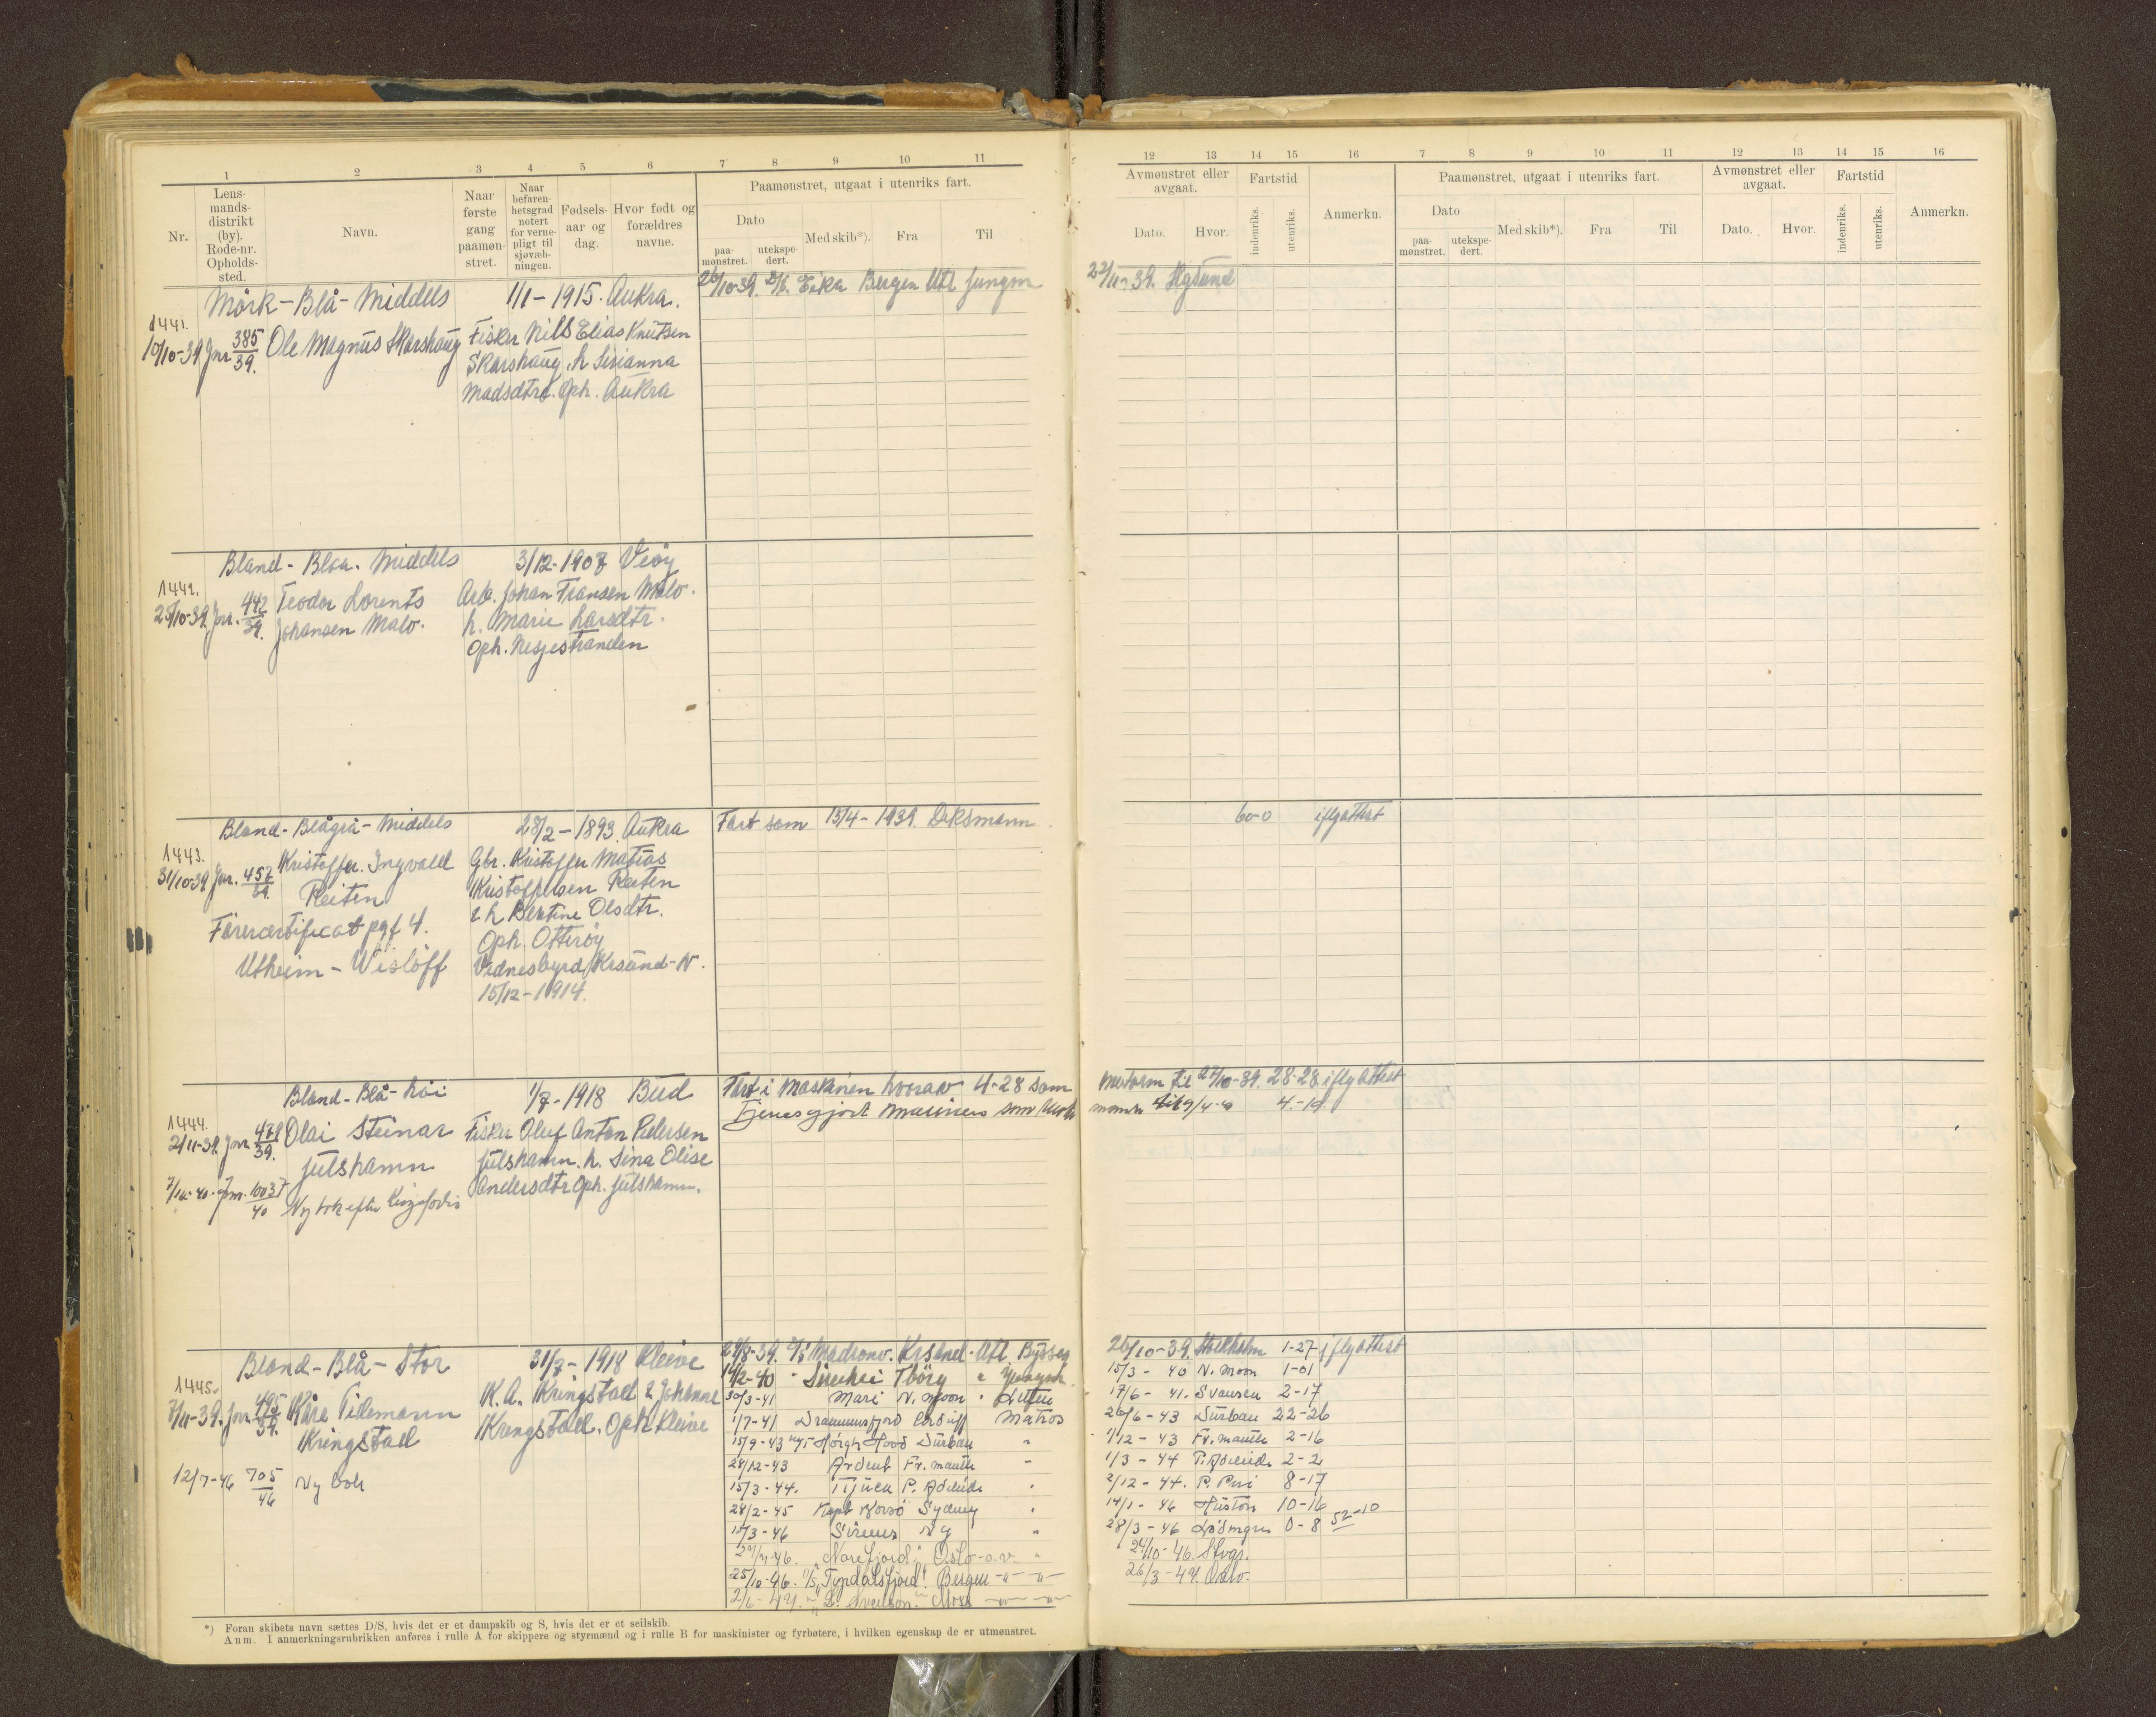 1 2 3 4 5 6 7 8 9 10 11
Nr.
Lens-
mands-
distrikt
(by).
Rode-nr.
Opholds-
sted.
Navn.
Naar
første
gang
paamøn-
stret.
Naar
befaren-
hetsgrad
notert
for verne-
pligt til
sjøvæb-
ningen.
Fødsels-
aar og
dag.
Hvor født og
forældres
navne.
Paamønstret, utgaat i utenriks fart.
Dato
paa-
mønstret.
utekspe-
dert.
Med skib*).
Fra
Til
12 13 14 15 16 7 8 9 10 11 12 13 14 15 16
Avmønstret eller
avgaat.
Dato.
Hvor.
Fartstid
indenriks.
utenriks.
Anmerkn.
Paamønstret, utgaat i utenriks fart.
Dato
paa-
mønstret.
utekspe-
dert.
Med skib*).
Fra
Til
Avmønstret eller
avgaat.
Dato.
Hvor.
Fartstid
indenriks.
utenriks.
Anmerkn.
Mörk-Blå-Middels 1/1-1915. Aukra.
1441.
10/10-39 Jnr 385/39. Ole Magnus Skarshaug Fisker Nils Elias Knutsen
Skarshaug, h
Madsdtr. Oph. Aukra
26/10-39. Erka Bergen Utl Jungm
22/11-39. Hgsund
Bland-Blaa-Middels 3/12-1907 Veöy
1442.
25/10-39. Jnr. 442/39. Teodor Lorents Arb. Johan Fransen Malo.
Johansen Malo. h. Marie Larsdtr.
Oph. Nesjestranden
Bland-Blågrå-Middels 28/2-1893. Aukra
1443.
31/10-39 Jnr. 457/39. Kristoffer Ingvald Gbr. Kristoffer Matias
Reiten Kristoffersen Reiten
& h Bertine Olsdtr.
Förercertificat pgf 4. Oph. Otteröy
Utheim-Wislöff Vidnesbyrd Krsund-N.
15/12-1914.
Fart som 13/4-1939. Deksmann
60-0 iflg attest
Bland-Blå-höi 1/7-1918 Bud
1444.
2/11-39. Jnr 479/39. Olai Steinar Fisker Oluf Anton Pedersen
Julshamn Julshamn. h. Sina Olise
Andersdtr Oph. Julshamn.
7/12-40. Jnr. 1003/40 Ny bok efter
Fart i Maskinen hvorav 4-28 som
Tjenesgjort marinen som
Motorm til 27/10-39. 28-28 iflg attest
4-10
Bland-Blå-Stor 31/7-1918 Kleive
1445.
7/11-39. Jnr 495/39. Kåre Tidemann K. A. Kringstad & Johanne
Kringstad Kringstad. Oph Kleive
12/7-46 705/46 Ny bok
29/8-39. Madrono. Krsand. Utl. Bysseg
14/2-40 Tbörg Jungm
30/3-41 Mari N. Moon
1/7-41 Drammensfjord Cardiff Matros
15/9-43 Höegh Hood Durban "
28/12-43 Ardent Fr. mantle "
15/3-44. Tijuca P. Adelaide "
28/2-45 Sydney "
15/3-46 Sirenes Ny "
46. Norefjord. Oslo-o.v. "
25/10-46. Bergen -"- -"-
2/6-47. Moss -"- -"-
26/10-39. Stockholm 1-27 iflg attest
15/3-40 N. Moon 1-01
17/6-41. Svansea 2-17
26/6-43 Durban 22-26
1/12-43 Fr. mantle 2-16
1/3-44 P. Adelaide 2-2
2/12-44. P. Piri 8-17
14/1-46 Huston 10-16
28/3-46 0-8 52-10
24/10-46. Stvgr.
26/3-47. Oslo.
*) Foran skibets navn sættes D/S, hvis det er et dampskib og S, hvis det er et seilskib.
Anm. I anmerkningsrubrikken anføres i rulle A for skippere og styrmænd og i rulle B for maskinister og fyrbøtere, i hvilken egenskap de er utmønstret.